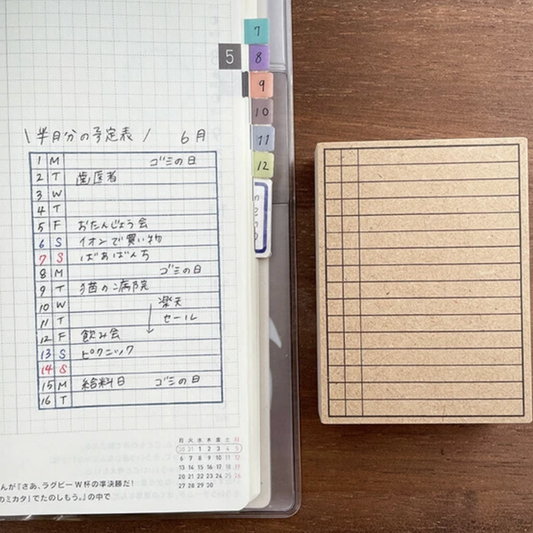 7
5
8
9
10
11
12
\ 半月分の予定表 / 6月
1 M ゴミの日
2 T 歯医者
3 W
4 T
5 F おたんじょう会
6 S イオンで買い物
7 S ばあばんち
8 M ゴミの日
9 T 猫の病院
10 W 楽天
11 T セール
12 F 飲み会
13 S ピクニック
14 S
15 M 給料日 ゴミの日
16 T
月 火 水 木 金 土 日
30 31 1 2 3 4 5
6 7 8 9 10 11 12
13 14 15 16 17 18 19
20 21 22 23 24 25 26
27 28 29 30
んが『さあ、ラグビーW杯の準決勝だ!
のミカタ』でたのしもう。』の中で